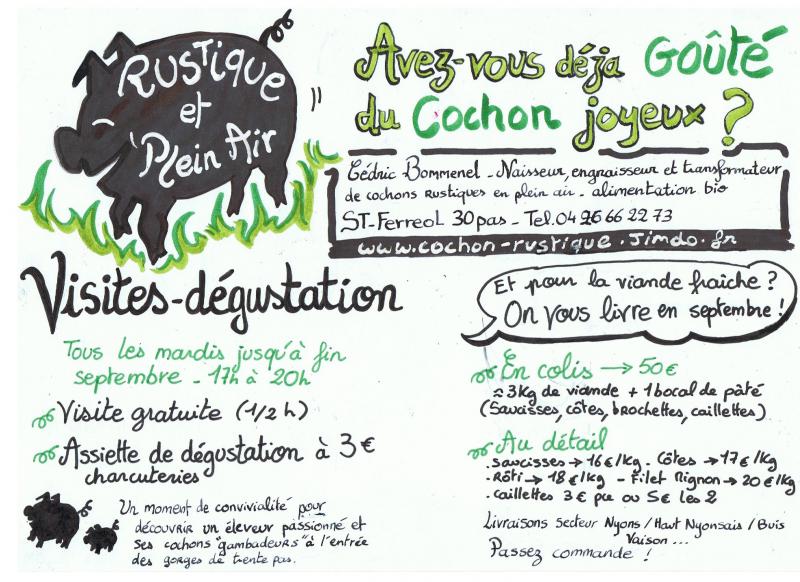 Rustique
et
Plein Air
Avez-vous déja Goûté
du Cochon joyeux ?
Cédric Bommenel - Naisseur, engraisseur et transformateur
de cochons Rustiques en plein air - alimentation bio
ST-Ferreol 30pas - Tel. 04 26 66 22 73
www.cochon-rustique.jimdo.fr
Visites-dégustation
Tous les mardis jusqu'à fin
septembre - 17h à 20h
Visite gratuite (1/2 h)
Assiette de dégustation à 3€
charcuteries
Un moment de convivialité pour
découvrir un éleveur passionné et
ses cochons "gambadeurs" à l'entrée
des gorges de trente pas.
Et pour la viande fraîche ?
On vous livre en septembre !
En colis → 50€
≈ 3Kg de viande + 1 bocal de pâté
(Saucisses, côtes, brochettes, caillettes)
Au détail
. saucisses → 16€/Kg - Côtes → 17€/Kg
. Rôti → 18€/Kg - Filet Mignon → 20€/Kg
. Caillettes 3€ pce ou 5€ les 2
Livraisons secteur Nyons / Haut Nyonsais / Buis
Vaison ...
Passez commande !